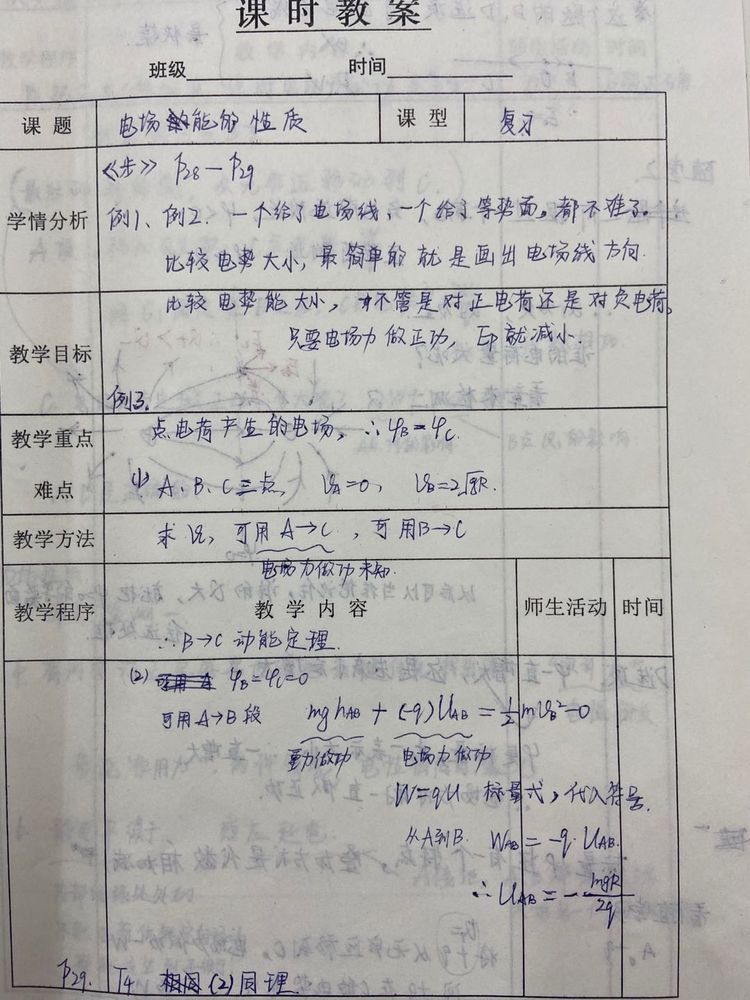 课时教案
班级 时间
课题 电场能的性质 课型 复习
《步》P28—P29
学情分析 例1、例2. 一个给了电场线,一个给了等势面。都不难了。
比较电势大小,最简单的就是画出电场线方向.
比较电势能大小,不管是对正电荷还是对负电荷,
只要电场力做正功,Ep就减小.
教学目标
例3.
教学重点 点电荷产生的电场,∴φB=φC.
难点 (1) A、B、C三点, VA=0, VB=2√gR.
教学方法 求VC,可用A→C,可用B→C
电场力做功未知.
教学程序 教学内容 师生活动 时间
∴B→C动能定理.
(2) φB=φC=0
可用A→B段 mghAB+(-q)UAB=½mVB²-0
重力做功 电场力做功
W=qU 标量式,代入符号.
从A到B. WAB=-q·UAB.
∴UAB=-mgR/2q
P29. T4 (2)同理.